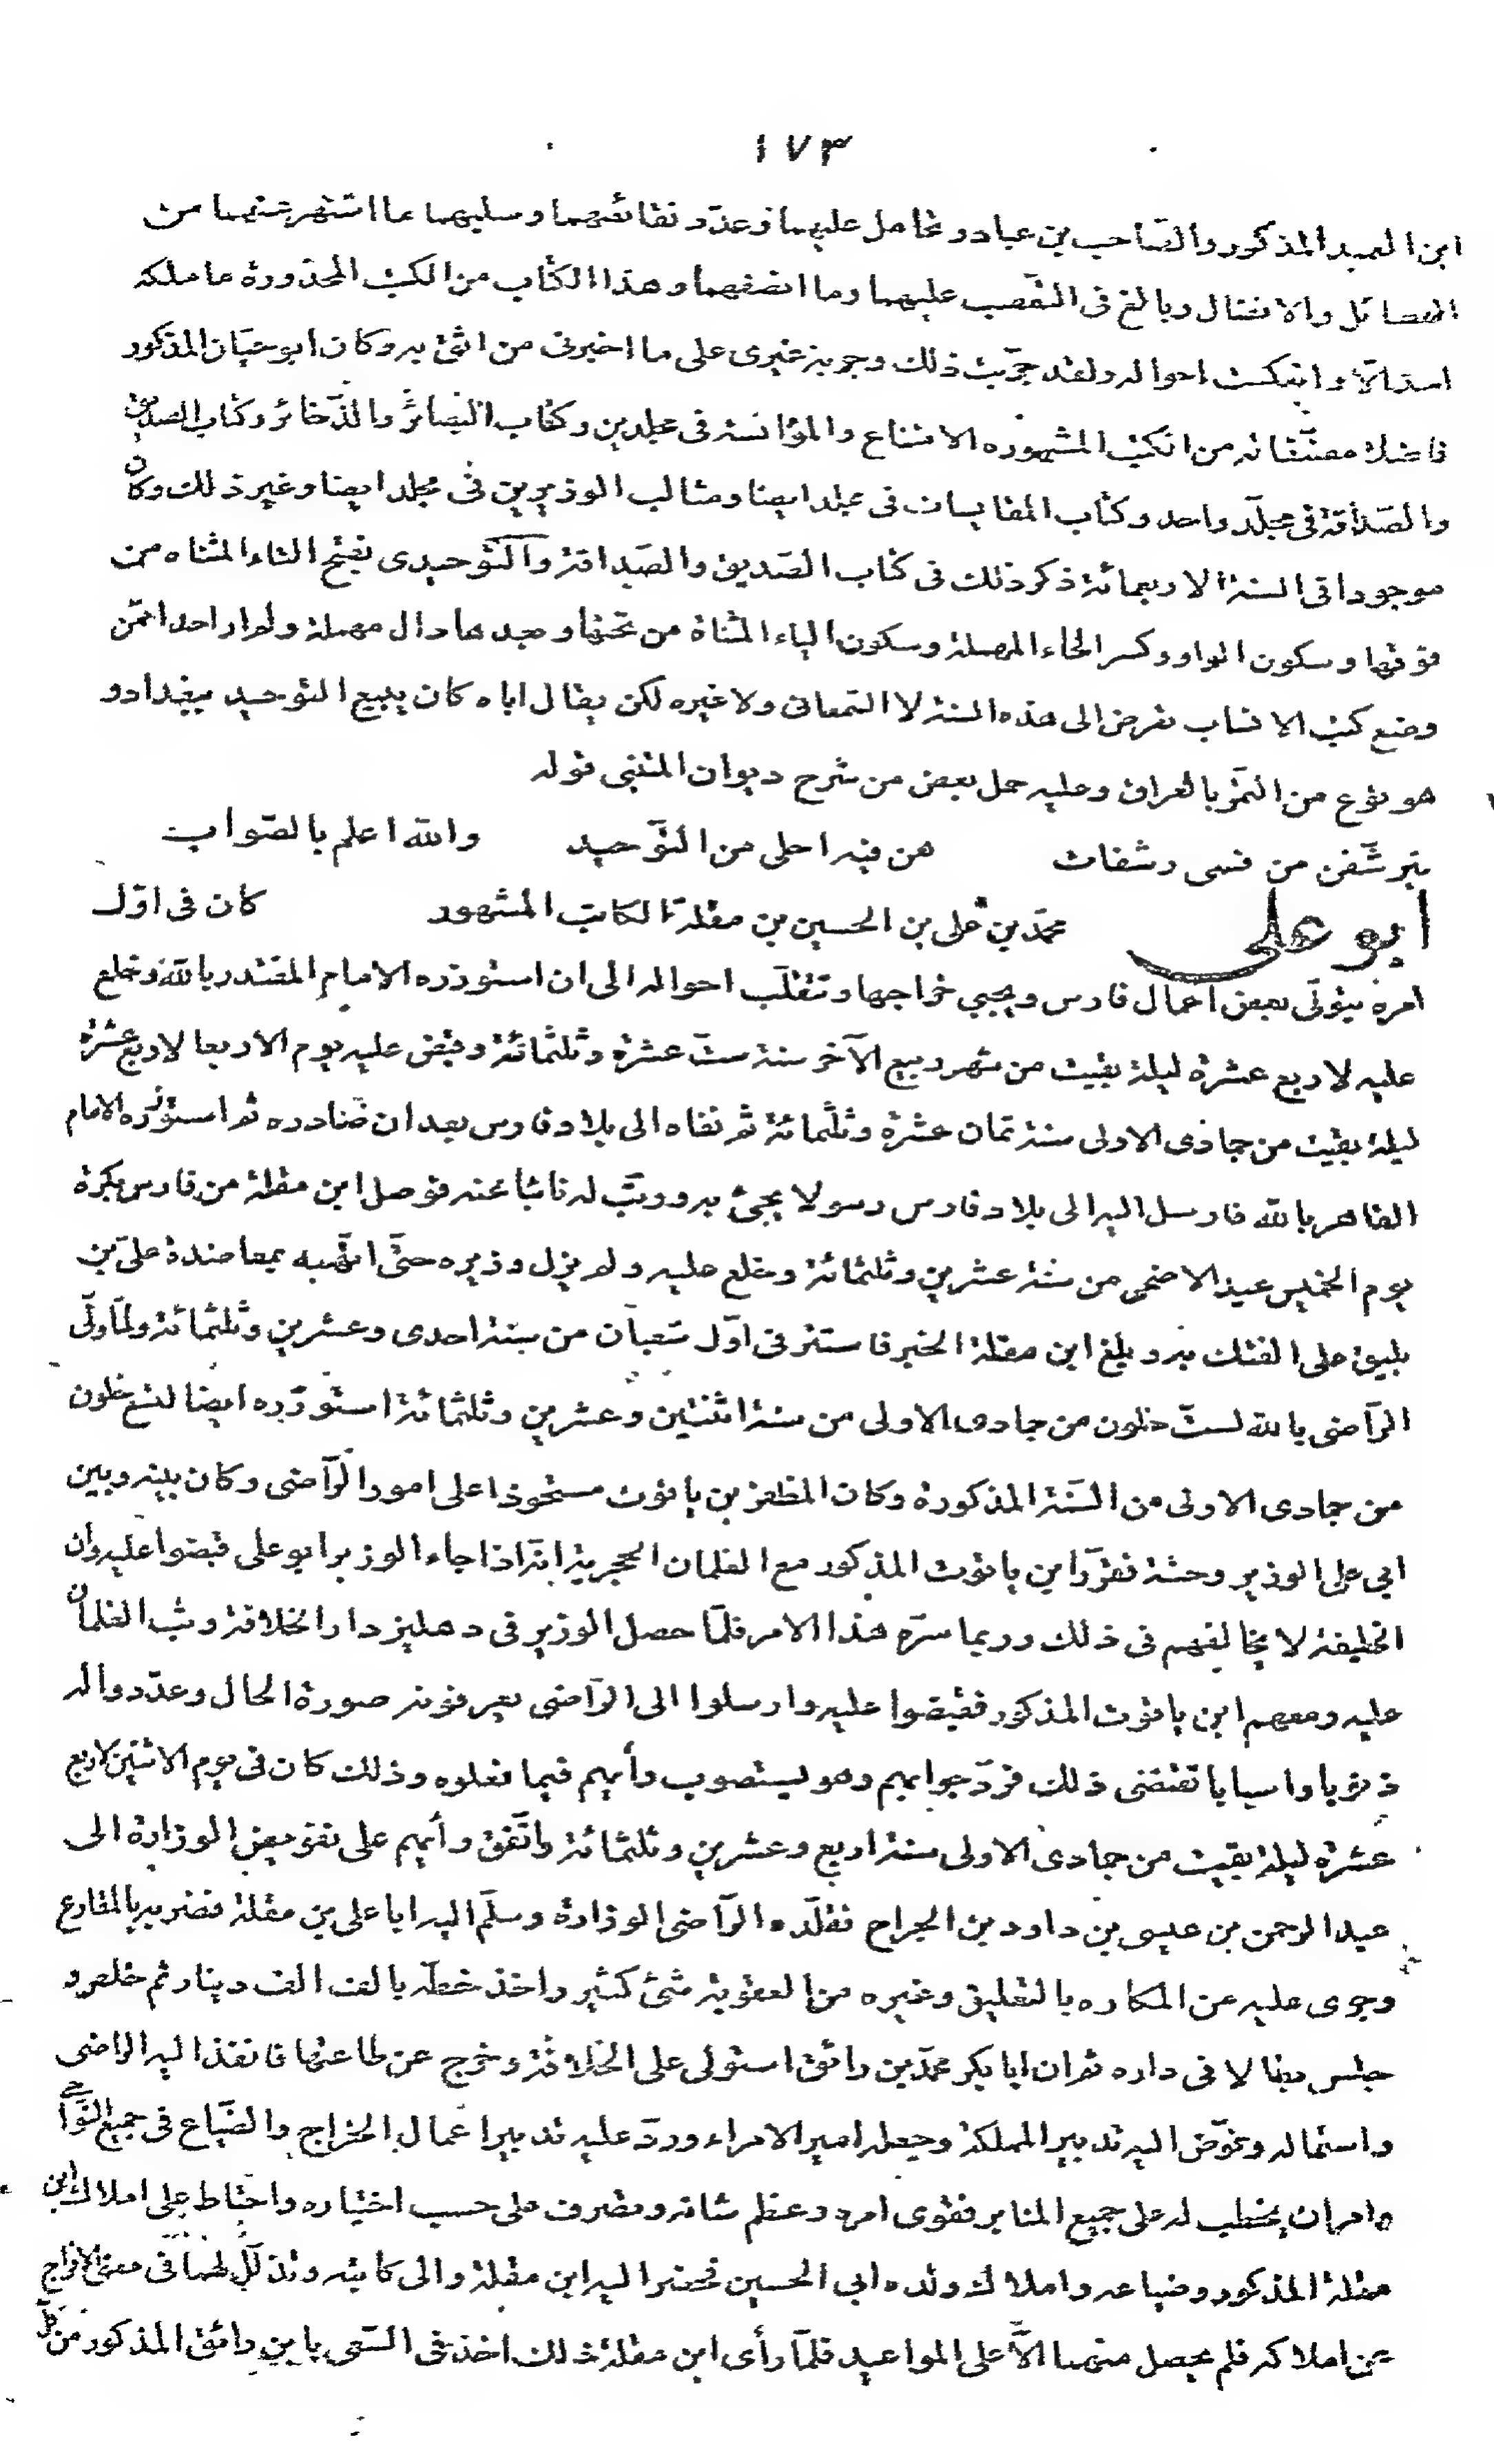 ١٧٣
ابن العميد المذكور والصّاحب بن عباد وتحامل عليهما وعدّد نقائصهما وسلبهما ما اشتهر عنهما من
الفضائل والافضال وبالغ فى التعّصب عليهما وما انصفهما وهذا الكتاب من الكتب المحذورة ما ملكه
احد الّا وانعكست احواله ولقد جرّبت ذلك وجربه غيرى على ما اخبرنى من اثق به وكان ابو حيّان المذكور
فاضلا مصنّفا له من الكتب المشهوره الامتاع والمؤانسة فى مجلدين وكتاب البصائر والذّخائر وكتاب الصديق
والصّداقة فى مجلّد واحد وكتاب المقابسات فى مجلد ايضا ومثالب الوزيرين فى مجلد ايضا وغير ذلك وكان
موجودا فى السنة الاربعمائة ذكر ذلك فى كتاب الصّديق والصّداقة والتّوحيدى بفتح التاء المثناه من
فوقها وسكون الواو وكسر الحاء المهملة وسكون الياء المثناة من تحتها وبعدها دال مهملة ولم ار احدا ممّن
وضع كتب الانساب تعرض الى هذه النسبة لا السّمعانى ولا غيره لكن يقال اباه كان يبيع التوحيد ببغداد و
هو نوع من التمر بالعراق وعليه حمل بعض من شرح ديوان المتنبى قوله
يترشّفن من فمى رشفات هن فيه احلى من التّوحيد والله اعلم بالصّواب
ابو على محمّد بن على بن الحسين بن مقلة الكاتب المشهور كان فى اوّل
امره يتولّى بعض اعمال فارس ويجبي خراجها وتتقلّب احواله الى ان استوزره الامام المقتدر بالله وخلع
عليه لاربع عشرة ليلة بقيت من شهر ربيع الآخر سنة ستّ عشرة وثلثمائة وقبض عليه يوم الاربعا لاربع عشرة
ليلة بقيت من جمادى الاولى سنة ثمان عشرة وثلثمائة ثم نفاه الى بلاد فارس بعد ان صادره ثم استوزره الامام
القاهر بالله فارسل اليه الى بلاد فارس رسولا يجئ به ورتّب له نائبا عنه فوصل ابن مقلة من فارس بكرة
يوم الخميس عيد الاضحى من سنة عشرين وثلثمائة وخلع عليه ولم يزل وزيره حتّى اتّهمه بمعاضدة علىّ بن
بليق على الفتك به وبلغ ابن مقلة الخبر فاستتر فى اوّل شعبان من سنة احدى وعشرين وثلثمائة ولمّا ولّى
الرّاضى بالله لستّ خلون من جمادى الاولى من سنة اثنتين وعشرين وثلثمائة استوزره ايضا لتسع خلون
من جمادى الاولى من السّنة المذكورة وكان المظفر بن ياقوت مستحوذا على امور الرّاضى وكان بينه وبين
ابى على الوزير وحشة فقرّر ابن ياقوت المذكور مع الغلمان الحجرية انّه اذا جاء الوزير ابو على قبضوا عليه وان
الخليفة لا يخالفهم فى ذلك وربما سرّه هذا الامر فلمّا حصل الوزير فى دهليز دار الخلافة وثب الغلمان
عليه ومعهم ابن ياقوت المذكور فقبضوا عليه وارسلوا الى الرّاضى يعرفونه صورة الحال وعدّدوا له
ذنوبا واسبابا تقتضى ذلك فردّ جوابهم وهو يستصوب رأيهم فيما فعلوه وذلك كان فى يوم الاثنين لاربع
عشرة ليلة بقيت من جمادى الاولى سنة اربع وعشرين وثلثمائة واتّفق رأيهم على تفويض الوزارة الى
عبد الرحمن بن عيسى بن داود بن الجراح فقلّده الرّاضى الوزارة وسلّم اليه ابا على بن مقلة فضربه بالمقارع
وجرى عليه من المكاره بالتعليق وغيره من العقوبة شئ كثير واخذ خطه بالف الف دينار ثم خلص و
جلس بطالا فى داره ثم ان ابا بكر محمّد بن رائق استولى على الخلافة وخرج عن طاعتها فانفذ اليه الراضى
واستماله وفوّض اليه تدبير المملكة وجعله امير الامراء وردّ عليه تدبير اعمال الخراج والضّياع فى جميع النّواحى
وامر ان يخطب له على جميع المنابر فقوى امره وعظم شانه وتصرف على حسب اختياره واحتاط على املاك ابن
مقلة المذكور وضياعه واملاك ولده ابى الحسين فحضر اليه ابن مقلة والى كاتبه وتذلّل لهما فى معنى الافراج
عن املاكه فلم يحصل منهما الّا على المواعيد فلمّا رأى ابن مقلة ذلك اخذ فى السّعى بابن رائق المذكور من كلّ